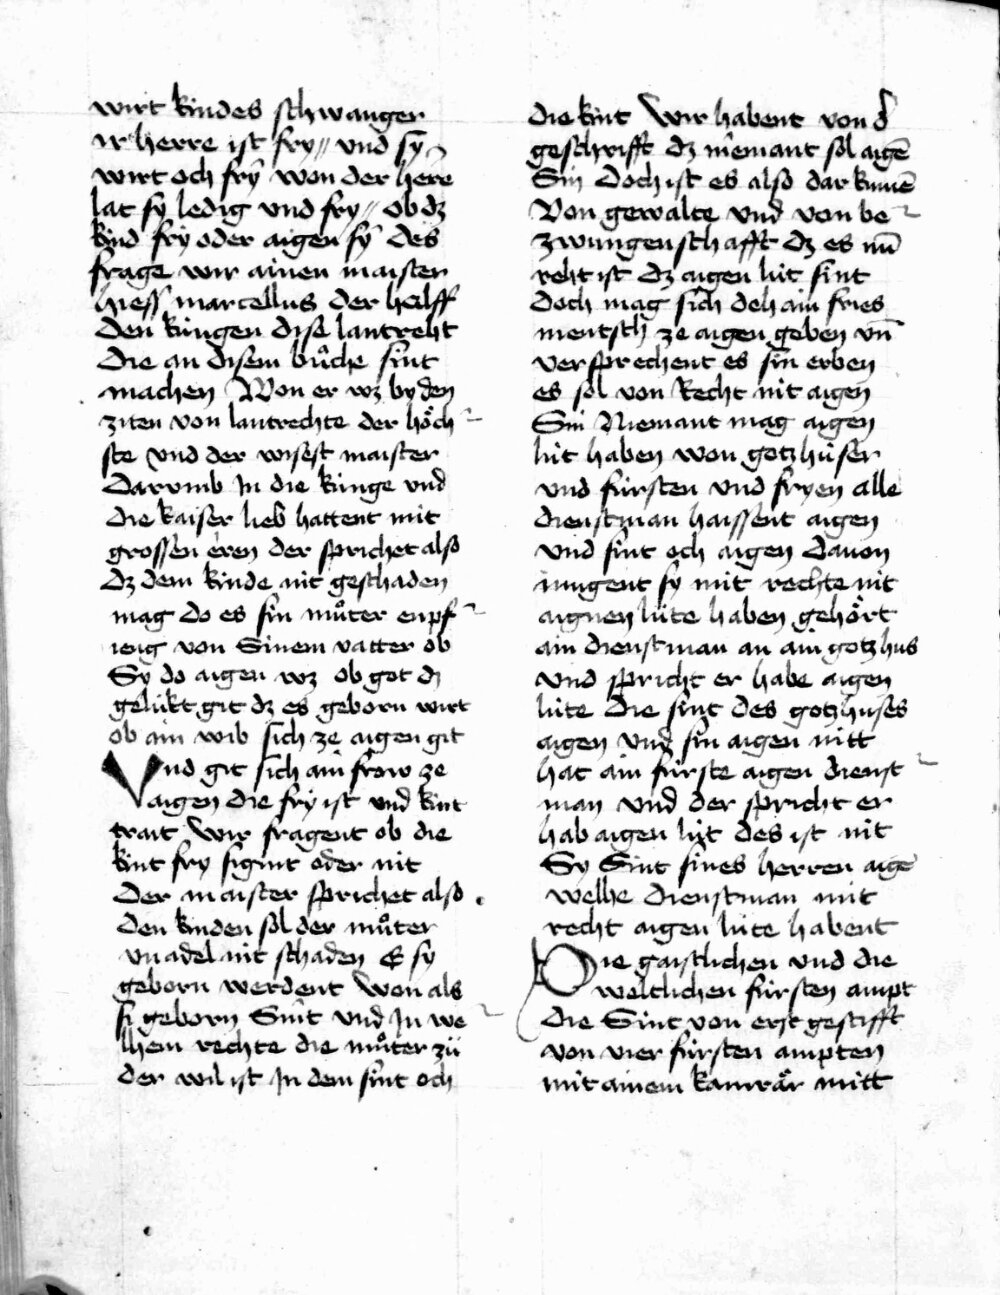 wirt kindes schwanger
ir herre ist fry // und sy
wirt och fry won der here
lat sy ledig und fry // ob dz
kind fry oder aigen sy des
frage wir ainen maister
hiess marcellus der halff
den kúngen dise lantreht
die an disem bůche sint
machen Won er wz by den
ziten von lantrechte der höch
ste und der wisest maister
Darumb In die kúnge und
die kaiser lieb hattent mit
grossen eren der sprichet also
dz dem kinde nit geschaden
mag do es sin můter enpf
ieng von Sinem vatter ob
Sy do aigen wz ob got dz
gelúkt git dz es geborn wirt
ob ain wib sich ze aigen git
Und git sich ain frow ze
aigen die fry ist und kint
trait Wir fragent ob die
kint fry sigint oder nit
Der maister sprichet also
den kinden sol der můter
unadel nit schaden E sy
geborn werdent Won als
si geborn Sint und In we
lhem rechte die můter zů
der wil ist In dem sint och
die kint Wir habent von d̕
geschrifft dz niemant sol aigē
Sin Doch ist es also dar kumē
Von gewalte und von be
zwungenschafft dz es nū
reht ist dz aigen lút sint
Doch mag sich dehain fries
mentsch ze aigen geben un̄
versprechent es sin erben
es sol von Recht nit aigen
Sin Niemant mag aigen
lút haben won gotzhúser
und fúrsten und fryen alle
dienstman haissent aigen
und sint och aigen Davon
mugent sy mit rechte nit
aignen lúte haben gehört
ain dienstman an ain gotzhus
und spricht er habe aigen
lúte Die sint des gotzhuses
aigen und sin aigen nitt
hat ain fúrste aigen dienst
man und der spricht er
hab aigen lút des ist nit
Sy Sint sines herren aigē
welhe dienstman mit
recht aigen lúte habent
Die gaistlichen und die
weltlichen fúrsten ampt
die Sint von erst gestifft
von vier fúrsten ampten
mit ainem kamrär mitt